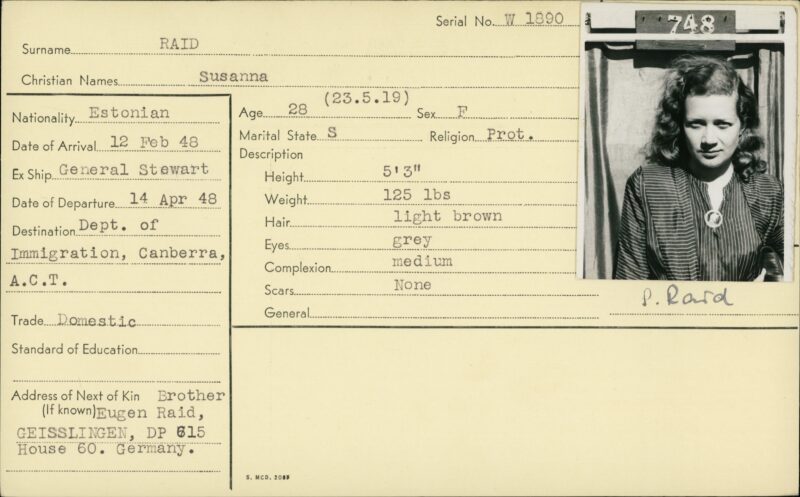 Serial No. W 1890
748
Surname RAID
Christian Names Susanna
Nationality Estonian
Date of Arrival 12 Feb 48
Ex Ship General Stewart
Date of Departure 14 Apr 48
Destination Dept. of
Immigration, Canberra,
A.C.T.
Trade Domestic
Standard of Education
Address of Next of Kin Brother
(If known) Eugen Raid,
GEISSLINGEN, DP 615
House 60. Germany.
(23.5.19)
Age 28 Sex F
Marital State S Religion Prot.
Description
Height 5'3"
Weight 125 lbs
Hair light brown
Eyes grey
Complexion medium
Scars None
General
S. Raid
S. MCD. 2089